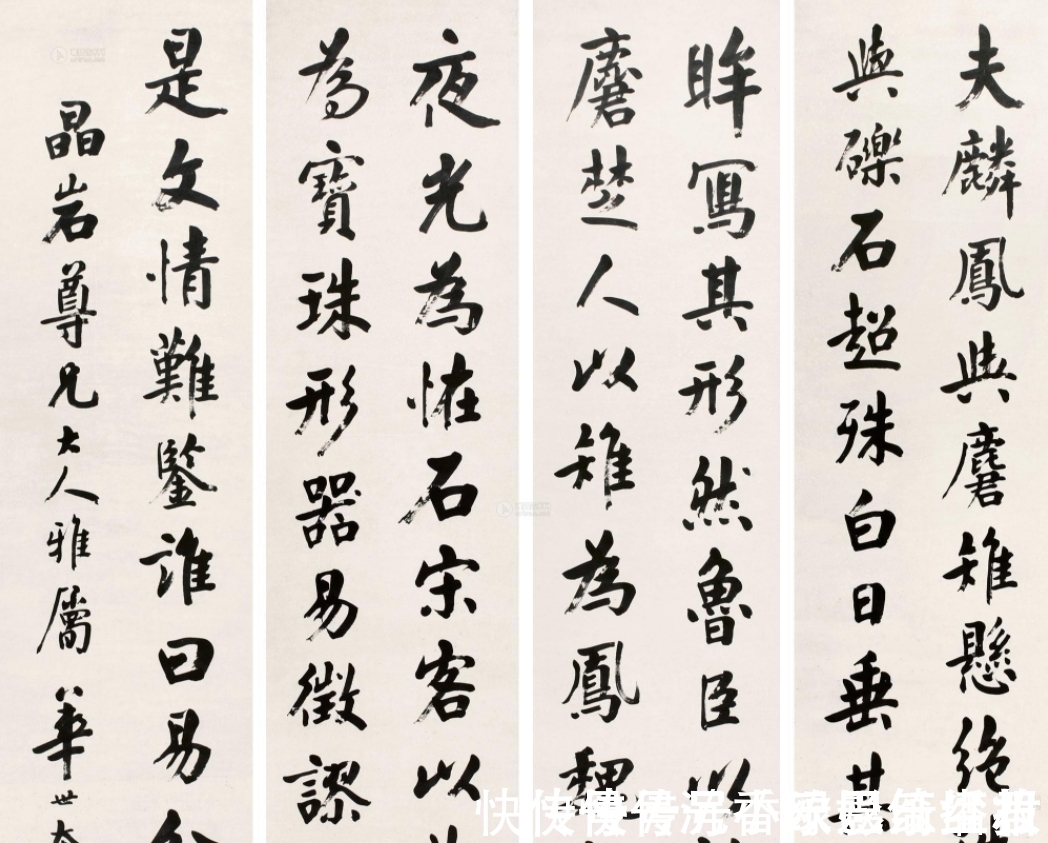 夫麟鳳與麏雉懸絶
與礫石超殊白日垂其
眸寫其形然魯臣以
麏楚人以雉為鳳魏
夜光為怪石宋客以
為寶珠形器易徵謬
是文情難鑒誰曰易分
晶岩尊兄大人雅屬 華世奎